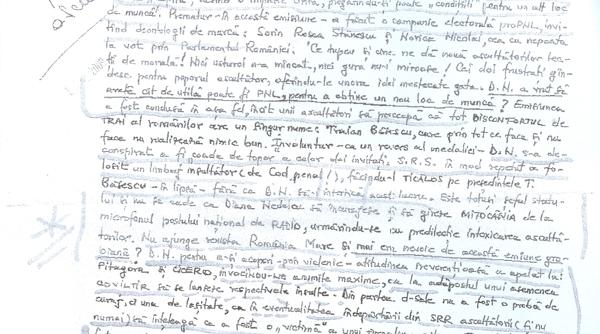 pregătindu-ți poate „condiții" pentru un alt loc
de muncă". Prematur - în această emisiune - a făcut o campanie electorală proPNL, invi-
tînd deontologii de marcă: Sorin Roșca Stănescu și Norica Nicolai, cea cu repetata
la vot prin Parlamentul României. "Ce tupeu și cine ne dă nouă ascultătorilor lec-
ții de morală! Nici usturoi n-a mîncat, nici gura nu-i miroase! Cei doi frustrați gîn-
desc pentru poporul ascultător, oferindu-le unora idei mestecate gata. D.N. a vrut să
arate cît de utilă poate fi PNL, pentru a obține un nou loc de muncă? Emisiunea
a fost condusă în așa fel, încît unii ascultători să priceapă că tot DISCONFORTUL DE
TRAI al românilor are un singur nume: Traian Băsescu, care prin tot ce face și nu
face nu realizează nimic bun. Involuntar - ca un revers al medaliei - D.N. s-a de-
conspirat a fi coadă de topor a celor doi invitați. S.R.S. în mod repetat a fo-
losit un limbaj insultător (de Cod penal!), făcîndu-l TICĂLOS pe președintele T.
Băsescu - în lipsă - fără ca D.N. să-i interzică acest lucru. Este totuși șeful statu-
lui și nu se cade ca Diana Nedelcu să încurajeze și să gireze MITOCĂNIA de la
microfonul postului național de RADIO, urmărindu-se cu predilecție intoxicarea ascultă-
torilor. Nu ajunge revista România Mare și mai era nevoie de această emisiune gro-
bioană? D.N. pentru a-și acoperi - prin viclenie - atitudinea nereverențioasă a apelat la
Pitagora și CICERO, invocîndu-le anumite maxime, ca la adăpostul unui asemenea
să se lanseze respectivele insulte. Din partea d-sale nu a fost o probă de
curaj, ci una de lașitate, ca în eventualitatea îndepărtării din SRR ascultătorii (și nu
numai) să înțeleagă că a fost o „victimă a unui